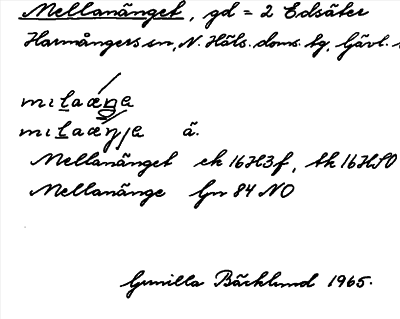 Mellanänget, gd = 2 Edsäter
Harmångers sn, N. Häls. doms. tg, Gävl.
ä.
Mellanänget ek 16H3f, tk 16HSO
Mellanänge Gn 84 NO
Gunilla Bäcklund 1965.